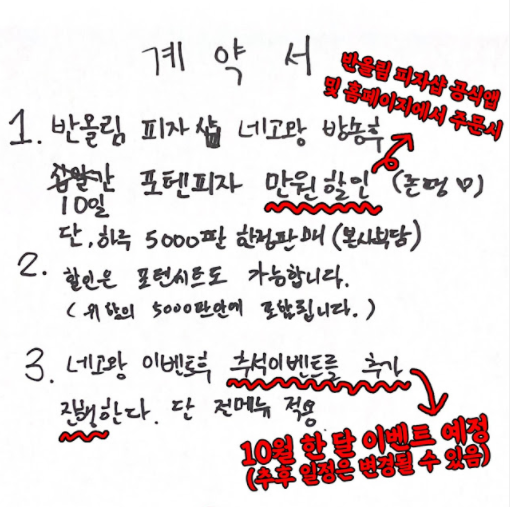 계 약 서
반올림 피자샵 공식앱
및 홈페이지에서 주문시
1. 반올림 피자샵 네고왕 방송후
간 포텐피자 만원할인 (존멍 ♡)
10일
단, 하루 5000판 한정판매 (본사부담)
2. 할인은 포텐세트도 가능합니다.
(위 할인 5000판안에 포함됩니다.)
3. 네고왕 이벤트후 추석이벤트를 추가
진행한다. 단 전메뉴 적용
10월 한 달 이벤트 예정
(추후 일정은 변경될 수 있음)